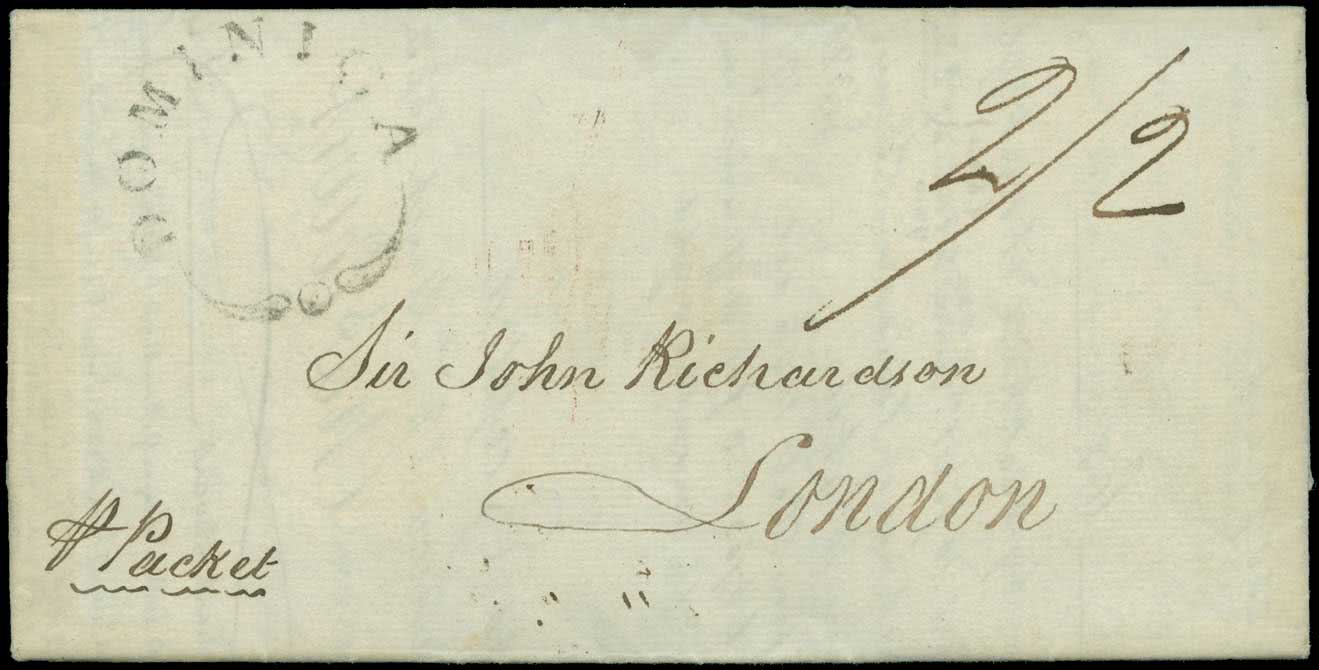 DOMINICA
2/2
Sir John Richardson
London
⅌ Packet